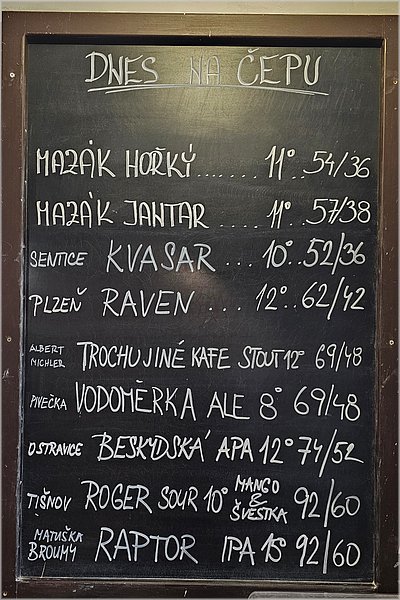 DNES NA ČEPU
MAZÁK HOŘKÝ ....... 11° .54/36
MAZÁK JANTAR .... 11°. 57/38
SENTICE KVASAR .... 10°. 52/36
PLZEŇ RAVEN ... 12°.. 62/42
ALBERT MICHLER TROCHU JINÉ KAFE STOUT 12° 69/48
PIVEČKA VODOMĚRKA ALE 8° 69/48
OSTRAVICE BESKYDSKÁ APA 12° 74/52
TIŠNOV ROGER SOUR 10° MANGO & ŠVESTKA 92/60
MATUŠKA BROUMY RAPTOR IPA 15° 92/60